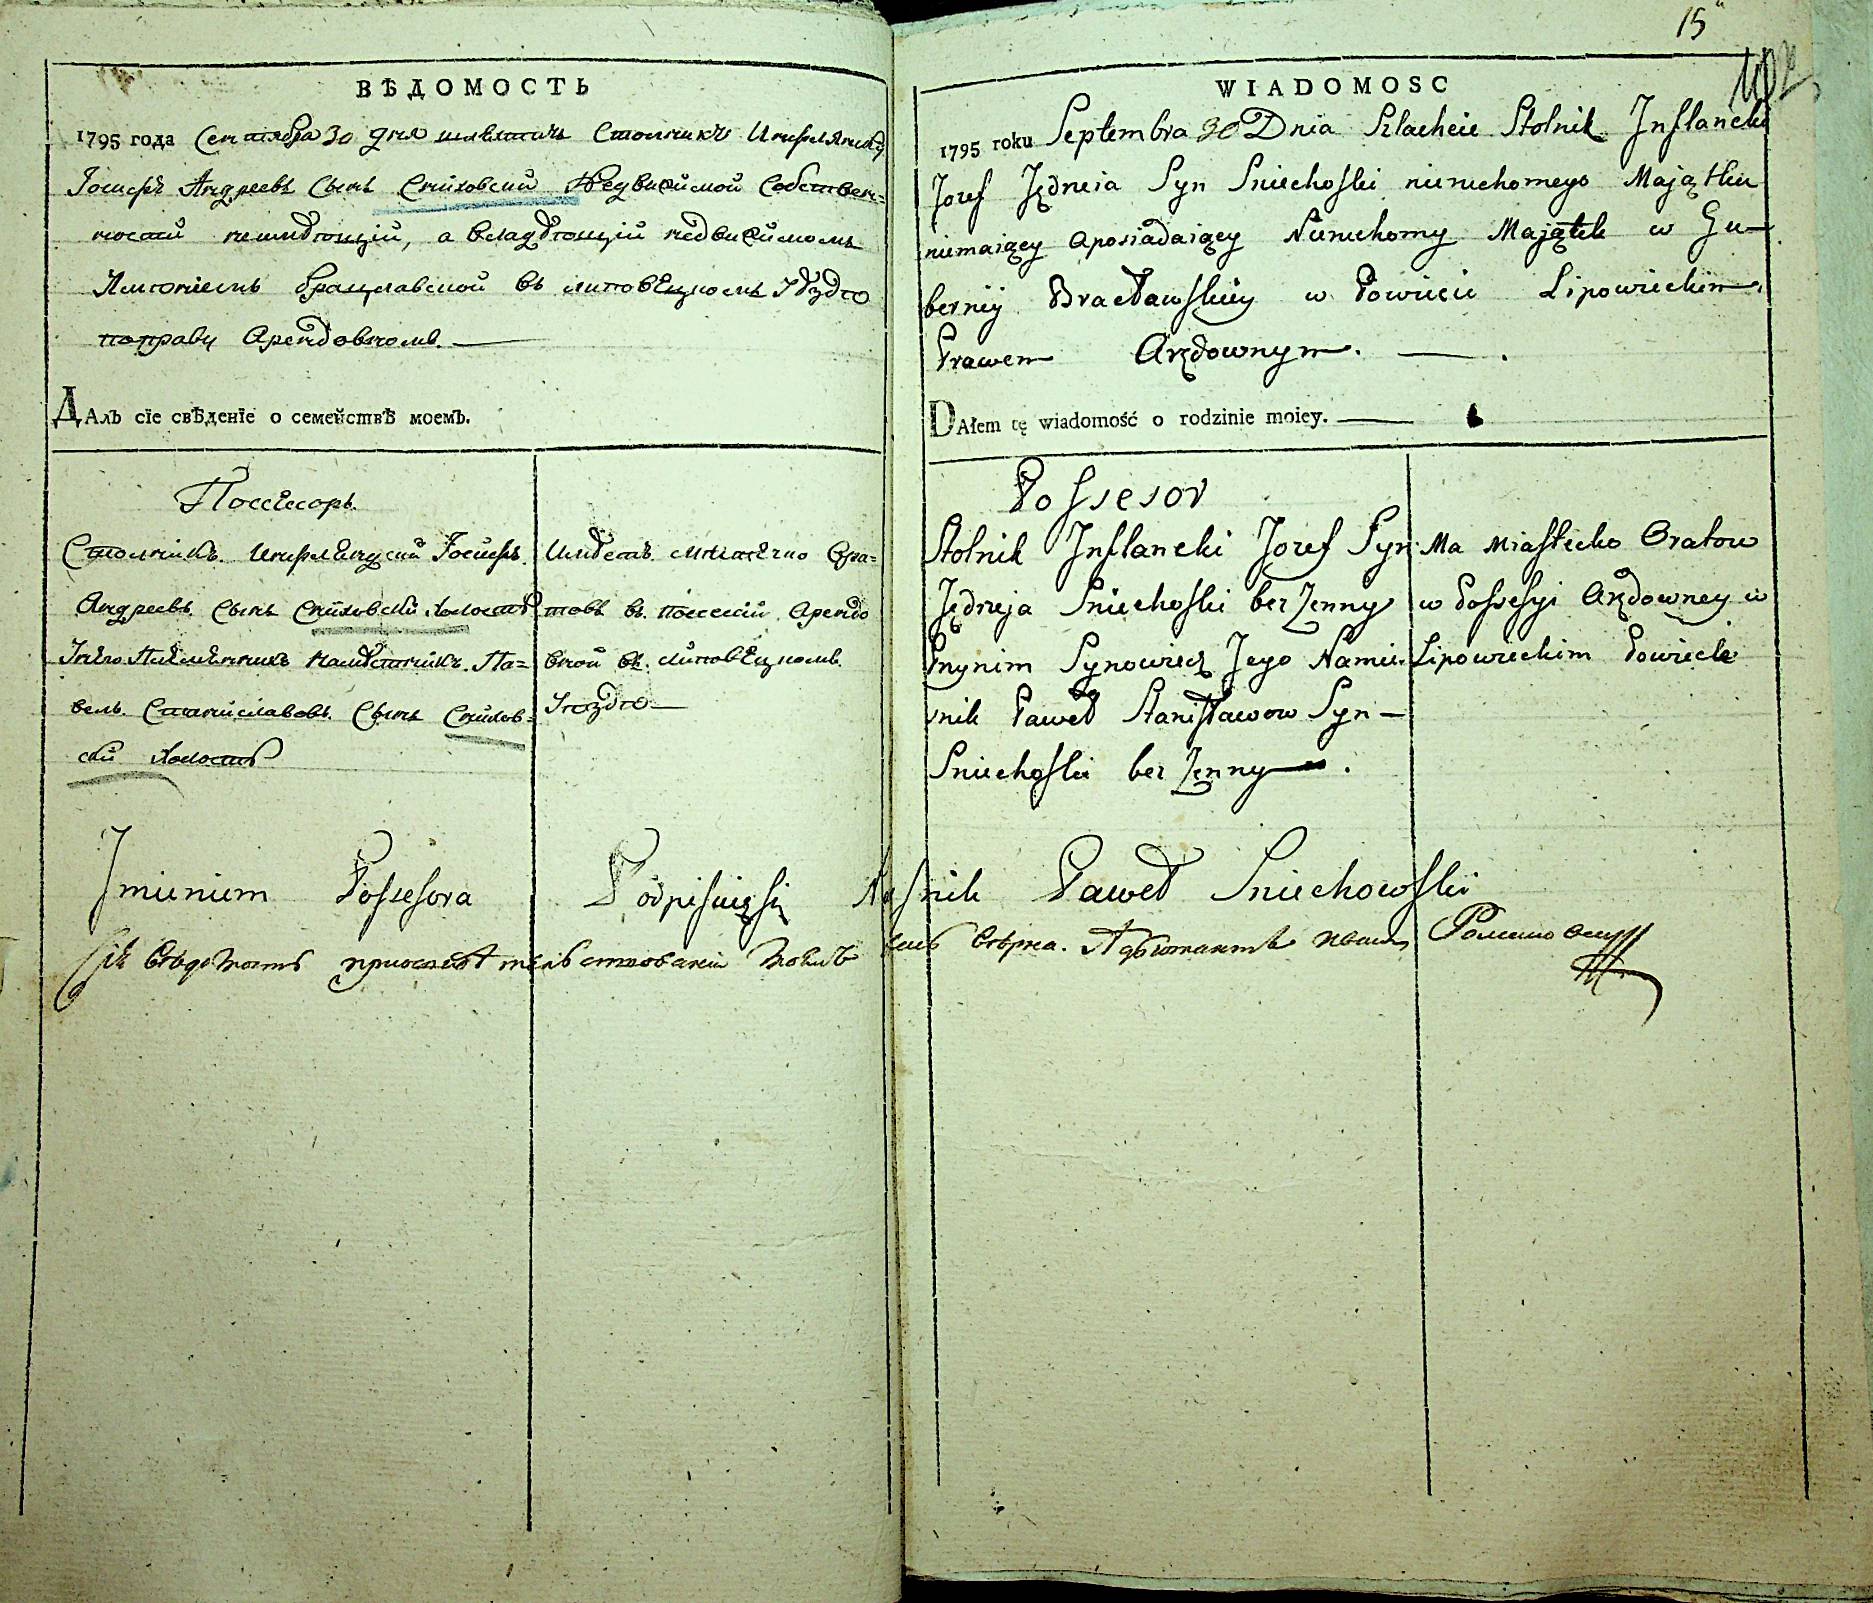 ВѢДОМОСТЬ
1795 года Сентября 30 дня шляхтичъ Столникъ Инфлянцкій
Іосифъ Андреевъ Сынъ Снѣховский Недвижимой Собствен=
ности неимѣющій, а владѣющій недвижимомъ
Имениемъ Брацлавской въ липовѣцкомъ Уѣздѣ
поправу Арендовномъ.
ДАлъ сїе свѣденїе о семействѣ моемъ.
Поссесоръ.
Столникъ Инфлянцкий Іосифъ
Андреевъ Сынъ Снѣховский холостъ
Унего Племянникъ намѣстникъ Па=
велъ Станиславовъ Сынъ Снѣхов=
ский холостъ
Имѣетъ мѣстечко Ора=
товъ въ поссесии Арендо
вной въ липовѣцкомъ
Уѣздѣ
Jmieniem Possesora Podpisuię się
Сія вѣдомость
15
WIADOMOSC
1795 roku Septembra 30 Dnia Szlacheic Stolnik Jnflancki
Jozef Jędrzeia Syn Sniechoski nieruchomego Maiątku
niemaiący aposiadaiący Nieruchomy Maiątek w Gu-
bernij Bracławskiey w Powiecie Lipowieckim
Prawem Arędownym.
DAłem tę wiadomość o rodzinie moiey.
Possesor
Stolnik Jnflancki Jozef Syn
Jędrzeja Sniechoski bez Zenny
Przynim Synowiec Jego Namie-
snik Paweł Stanisławow Syn -
Sniechoski bez Zenny.
Ma Miastecko Oratow
w Possesyi Arędowney w
Lipowieckim Powiecie
Namiesnik Paweł Sniechowski
вѣрна. Адъютантъ